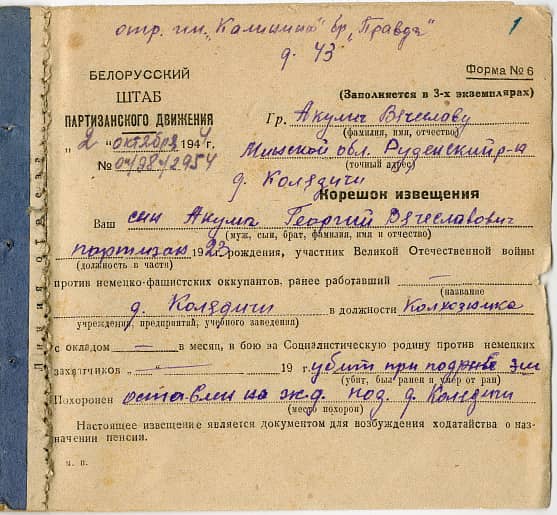 отр. им. "Калинина" бр. "Правда"
д. 43
1
БЕЛОРУССКИЙ
ШТАБ
ПАРТИЗАНСКОГО ДВИЖЕНИЯ
„2" октября 1944 г.
№ 04/984/2954
Форма № 6
(Заполняется в 3-х экземплярах)
Гр. Акулич Вячеславу
(фамилия, имя, отчество)
Минской обл. Руденский р-н
(точный адрес)
д. Колядичи
Корешок извещения
Ваш сын Акулич Георгий Вячеславович
(муж, сын, брат, фамилия, имя и отчество)
партизан 1923 рождения, участник Великой Отечественной войны
(должность в части)
против немецко-фашистских оккупантов, ранее работавший —
(название
д. Колядичи в должности Колхозника
учреждения, предприятий, учебного заведения)
с окладом — в месяц, в бою за Социалистическую родину против немецких
захватчиков „ — " 19 г. убит при подрыве
(убит, был ранен и умер от ран)
Похоронен оставлен на ж.д. под д. Колядичи
(место похорон)
Настоящее извещение является документом для возбуждения ходатайства о на-
значении пенсии.
м. п.
Линия отреза